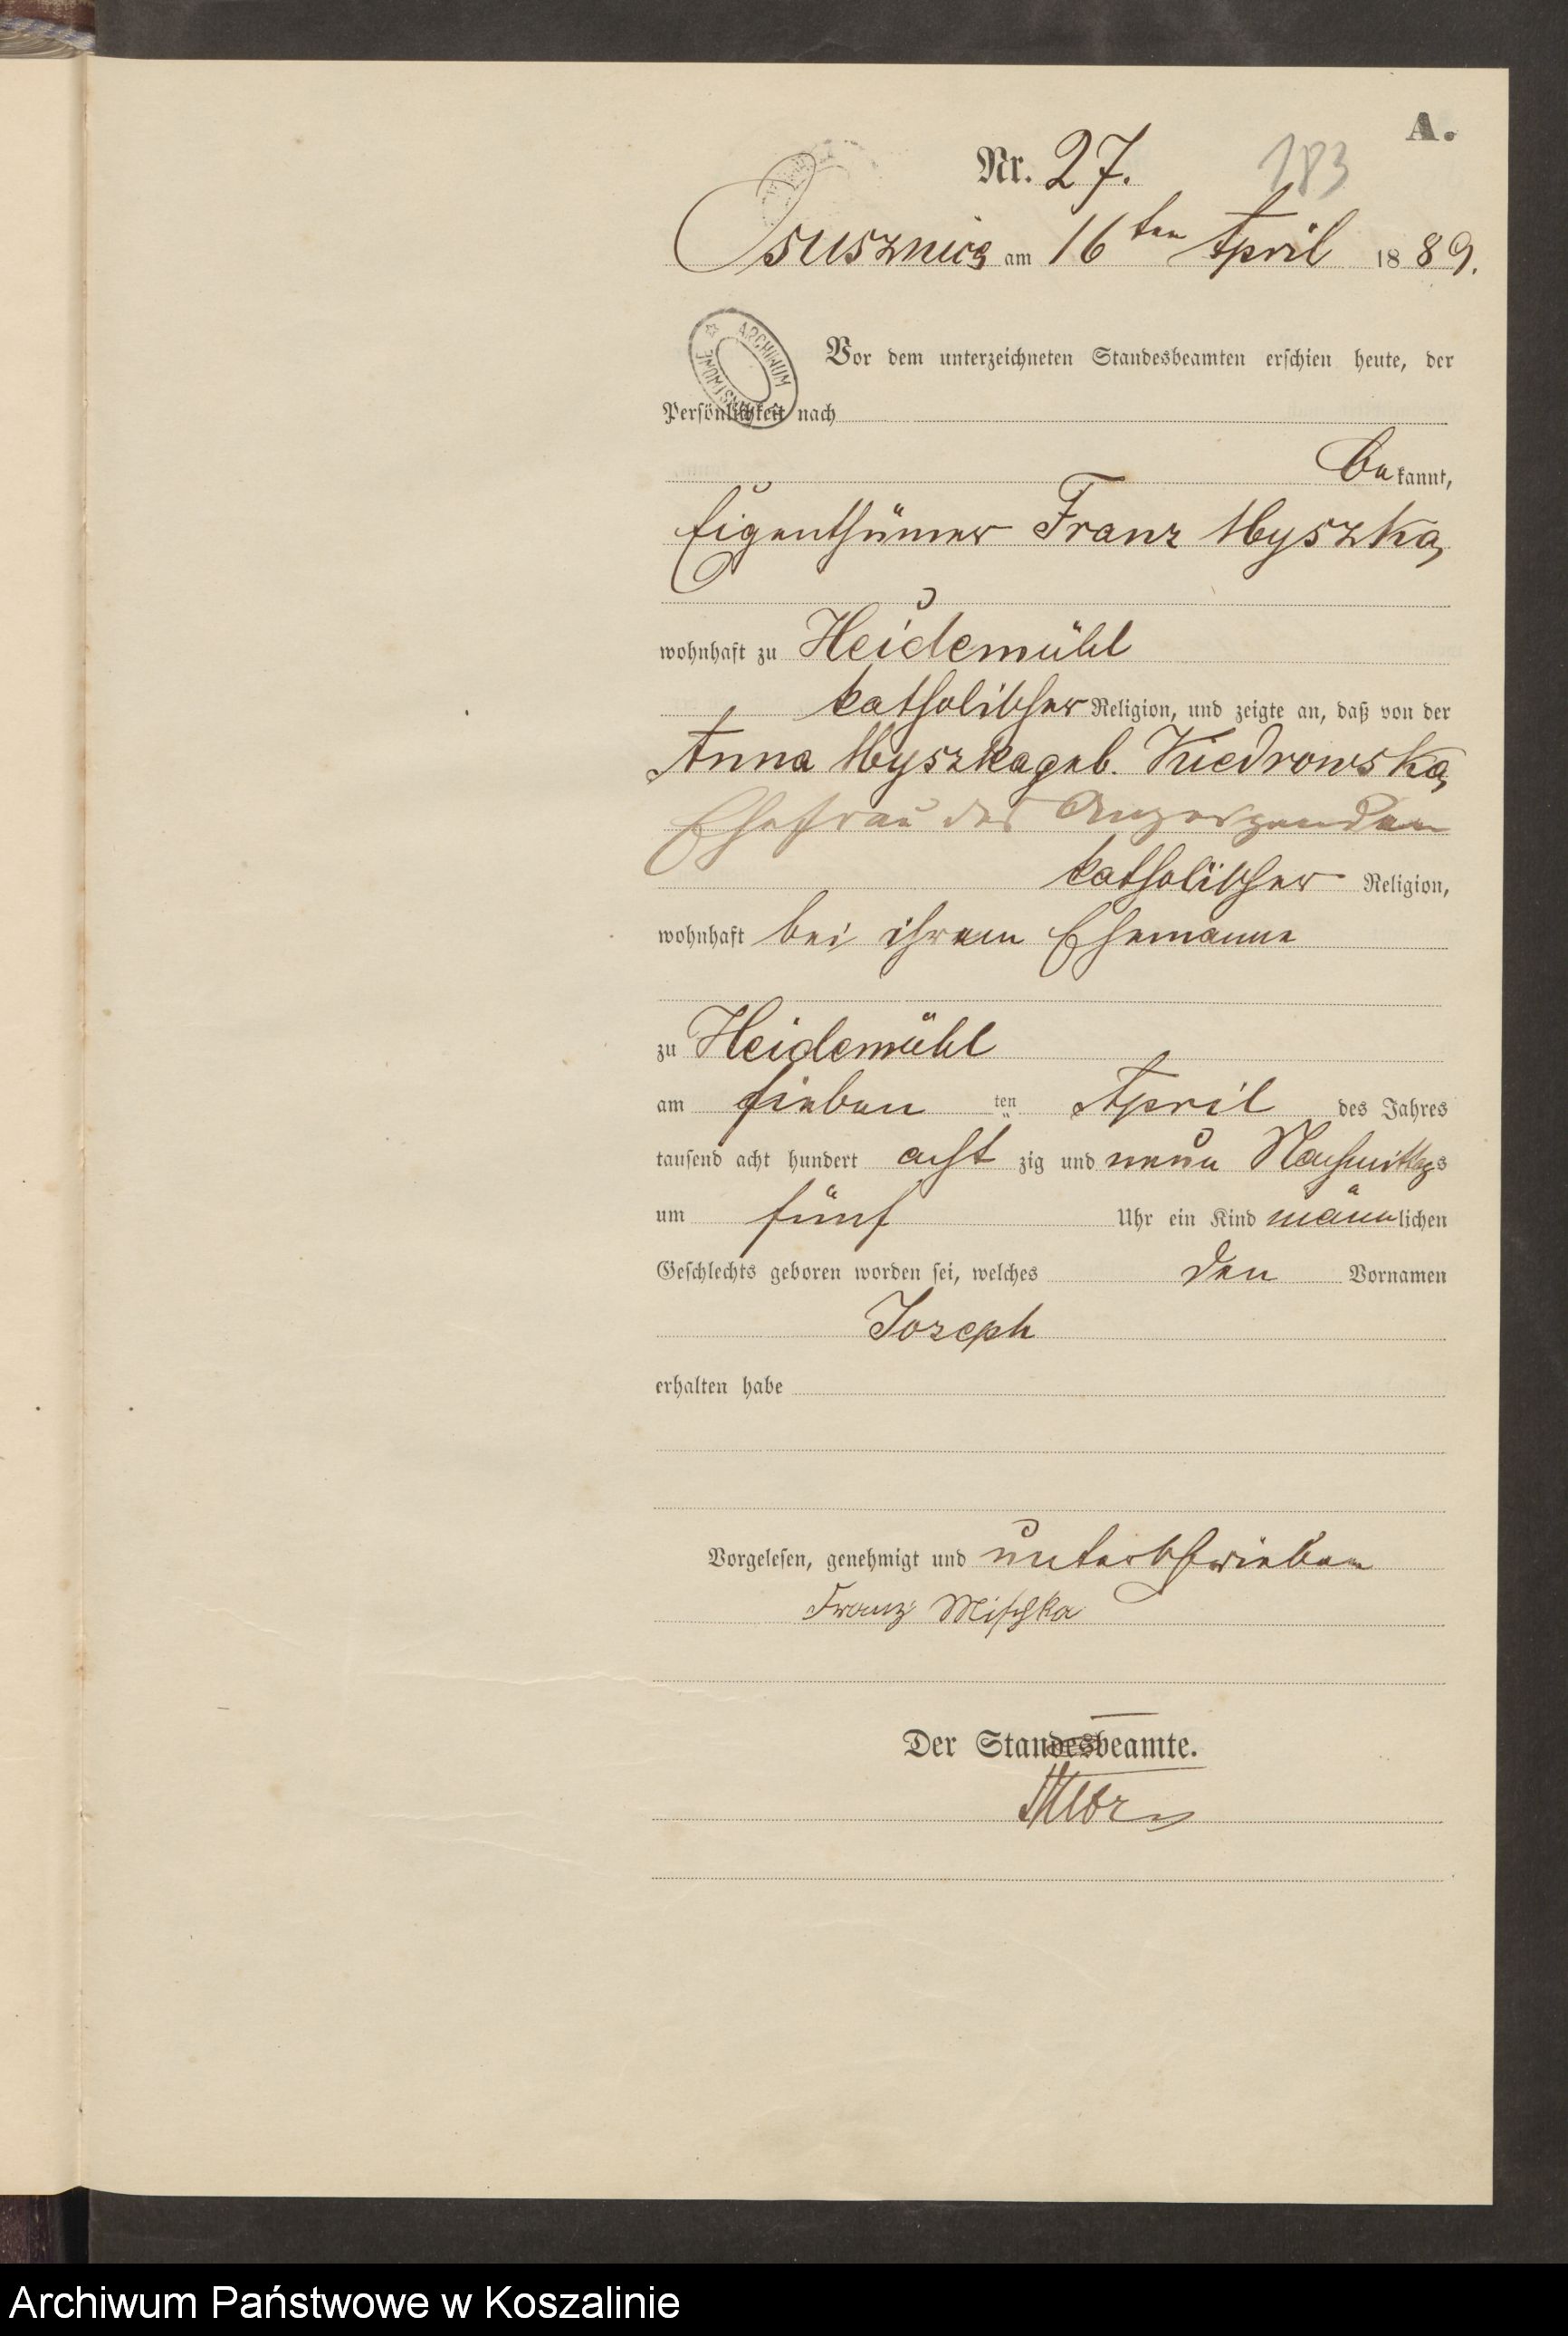 A.
Nr. 27.
183
Osusznica am 16ten April 1889.
ARCHIWUM
Vor dem unterzeichneten Standesbeamten erschien heute, der
Persönlichkeit nach
bekannt,
Eigenthümer Franz Myszka,
wohnhaft zu Heidemühl
katholischer Religion, und zeigte an, daß von der
Anna Myszka geb. Kiedrowska,
Ehefrau des Anzeigenden
katholischer Religion,
wohnhaft bei ihrem Ehemanne
zu Heidemühl
am sieben ten April des Jahres
tausend acht hundert acht zig und neun Nachmittags
um fünf Uhr ein Kind männlichen
Geschlechts geboren worden sei, welches den Vornamen
Joseph
erhalten habe
Vorgelesen, genehmigt und unterschrieben
Franz Mischka
Der Standesbeamte.
Archiwum Państwowe w Koszalinie